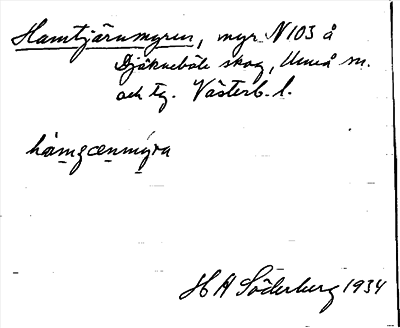 Hamtjärnmyren, myr N 103 å
Djäkneböle skog, Umeå sn.
och tg. Västerb. l.
hamʒænmyra
H A Söderberg 1934